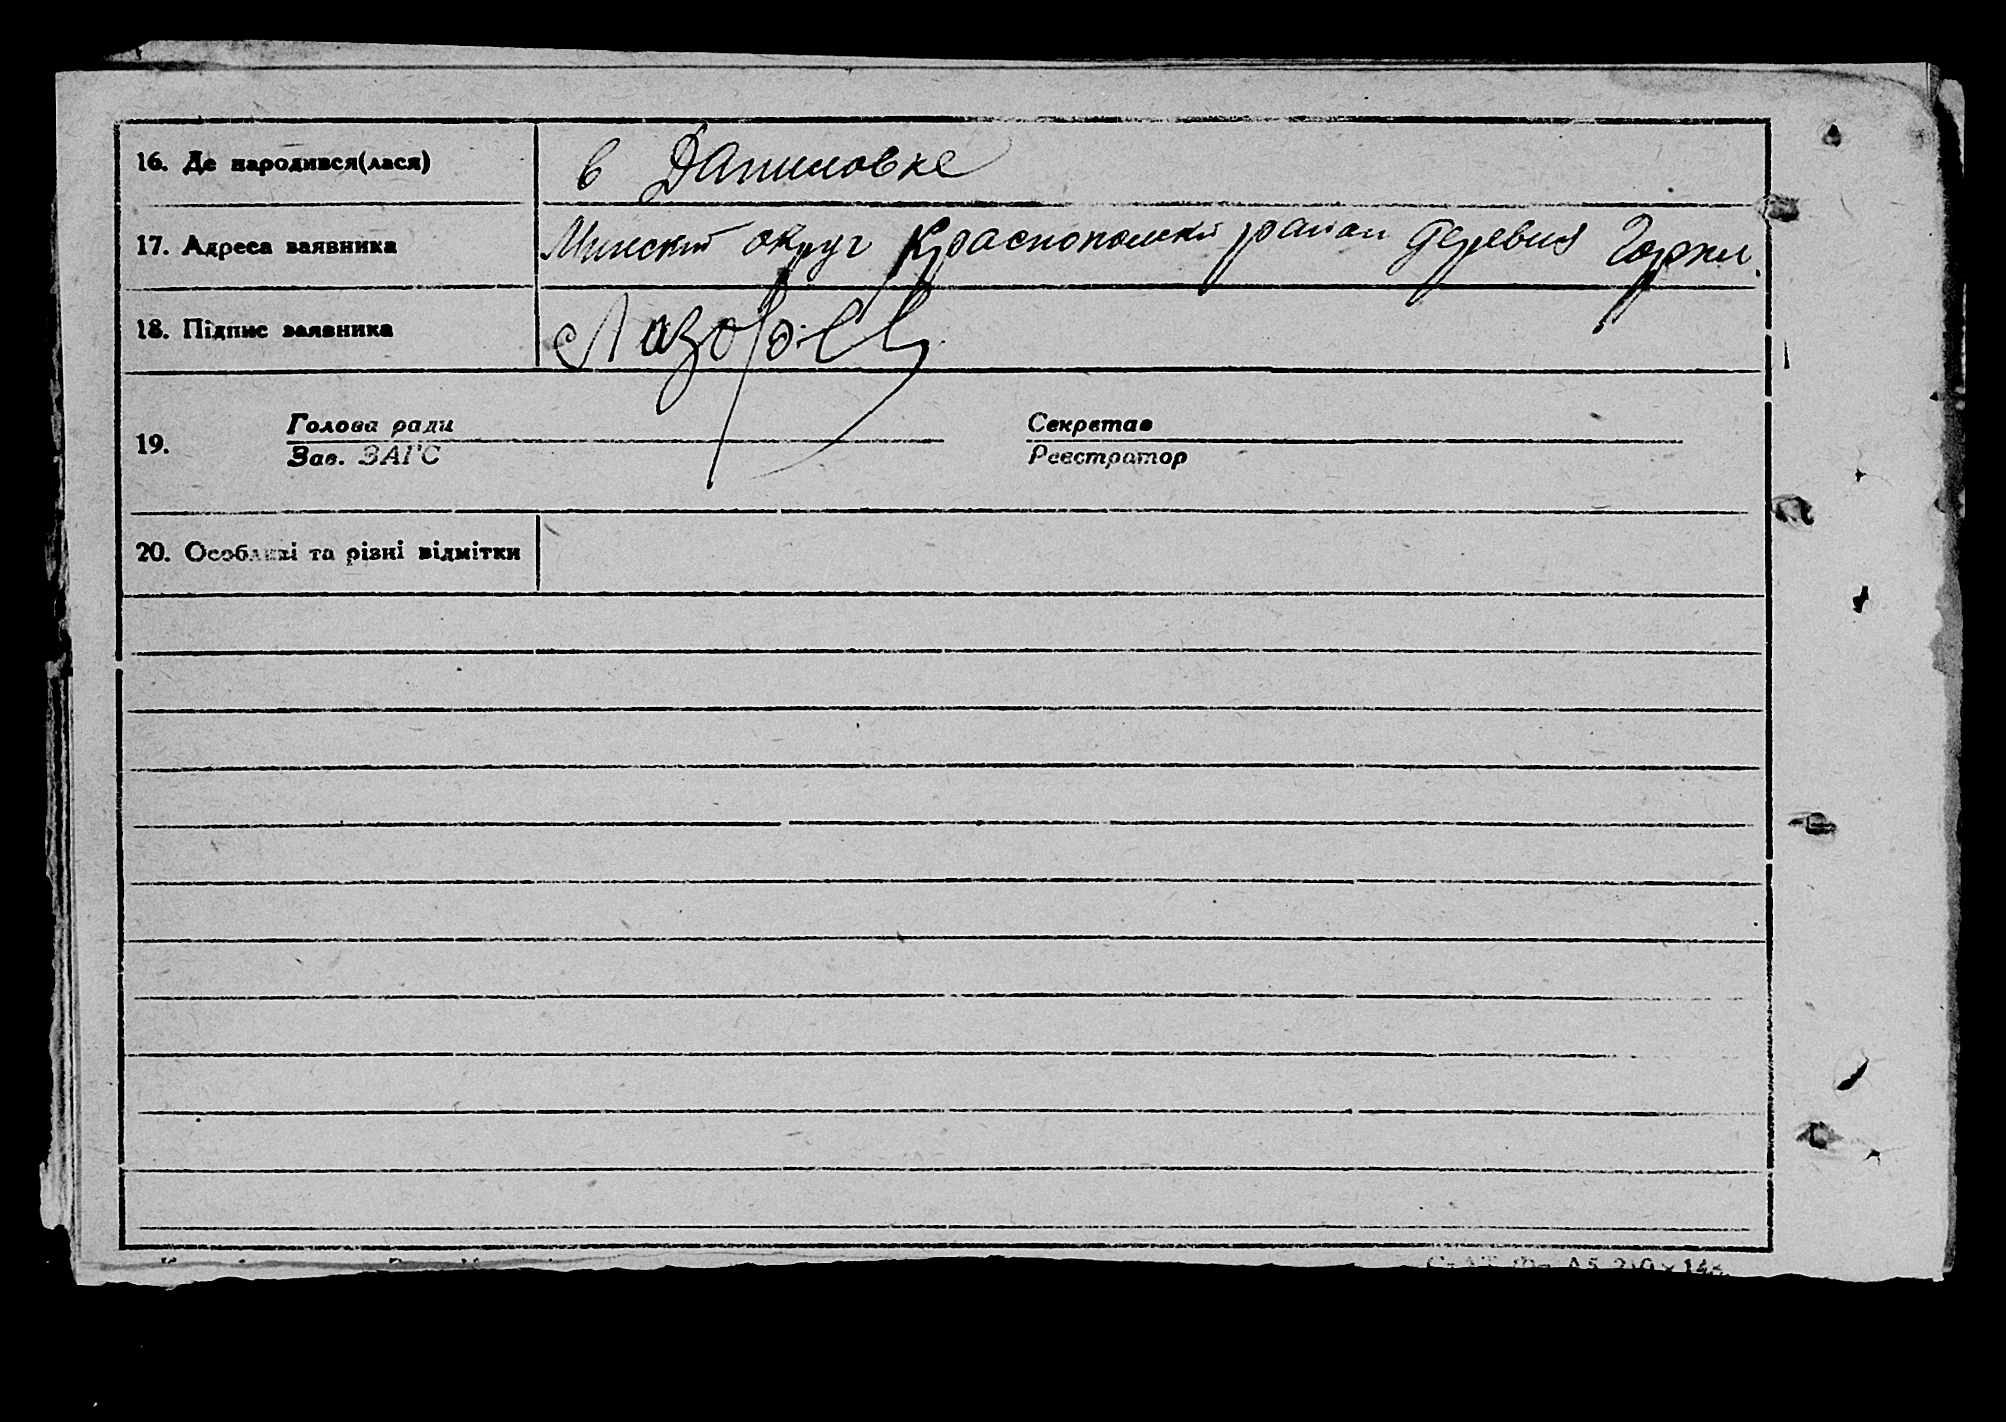 16. Де народився(лася) в Даниловке
17. Адреса заявника Минский округ Краснопольский район деревня
18. Підпис заявника Лазорев
19. Голова ради Секретар
Зав. ЗАГС Реєстратор
20. Особливі та різні відмітки